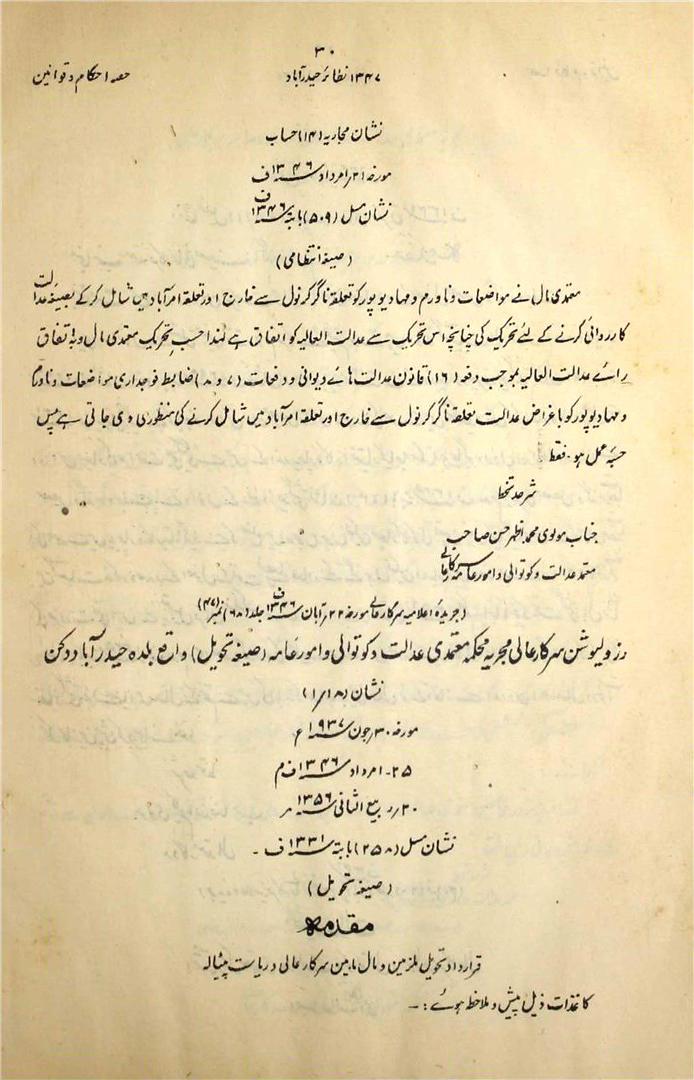 ۳۰
۱۳۴۷ نظائر حیدرآباد
حصہ احکام و قوانین
نشان مجاریہ (۱۴) حساب
مورخہ ۲۱ امرداد ۱۳۴۶ ف
نشان مسل (۵۰۹) بابتہ ۱۳۴۶ ف
(صیغہ انتظامی)
معتمدی مال نے مواضعات وناورم و مہادیوپور کو تعلقہ ناگرکرنول سے خارج اور تعلقہ امرآباد میں شامل کرکے بصیغہ عدالت
کارروائی کرنے کے لئے تحریک کی چنانچہ اس تحریک سے عدالت العالیہ کو اتفاق ہے لہٰذا حسب تحریک معتمدی مال و باتفاق
رائے عدالت العالیہ بموجب دفعہ (۱۶) قانون عدالت ہائے دیوانی و دفعات (۷ و ۸) ضابطہ فوجداری مواضعات وناورم
و مہادیوپور کو باغراض عدالت تعلقہ ناگرکرنول سے خارج اور تعلقہ امرآباد میں شامل کرنے کی منظوری دی جاتی ہے پس
حسبہ عمل ہو۔ فقط۔
شرحدستخط
جناب مولوی محمد اظہر حسن صاحب
معتمد عدالت و کوتوالی و امور عامہ سرکارعالی
(جریدہ اعلامیہ سرکارعالی مورخہ ۲۲ آبان ۱۳۴۶ ف جلد (۶۸) نمبر (۴۷))
رزولیوشن سرکارعالی مجریہ محکمہ معتمدی عدالت و کوتوالی و امور عامہ (صیغہ تحویل) واقع بلدہ حیدرآباد دکن
نشان (۱/۱۸)
مورخہ ۳۰ جون ۱۹۳۷ ء
۲۵۔ امرداد ۱۳۴۶ ف م
۲۰ ربیع الثانی ۱۳۵۶ ھ
نشان مسل (۲۵۸) بابتہ ۱۳۳۱ ف۔
(صیغہ تحویل)
مقدمہ
قرارداد تحویل ملزمین و مال مابین سرکارعالی و ریاست پٹیالہ
کاغذات ذیل پیش و ملاحظہ ہوئے:۔